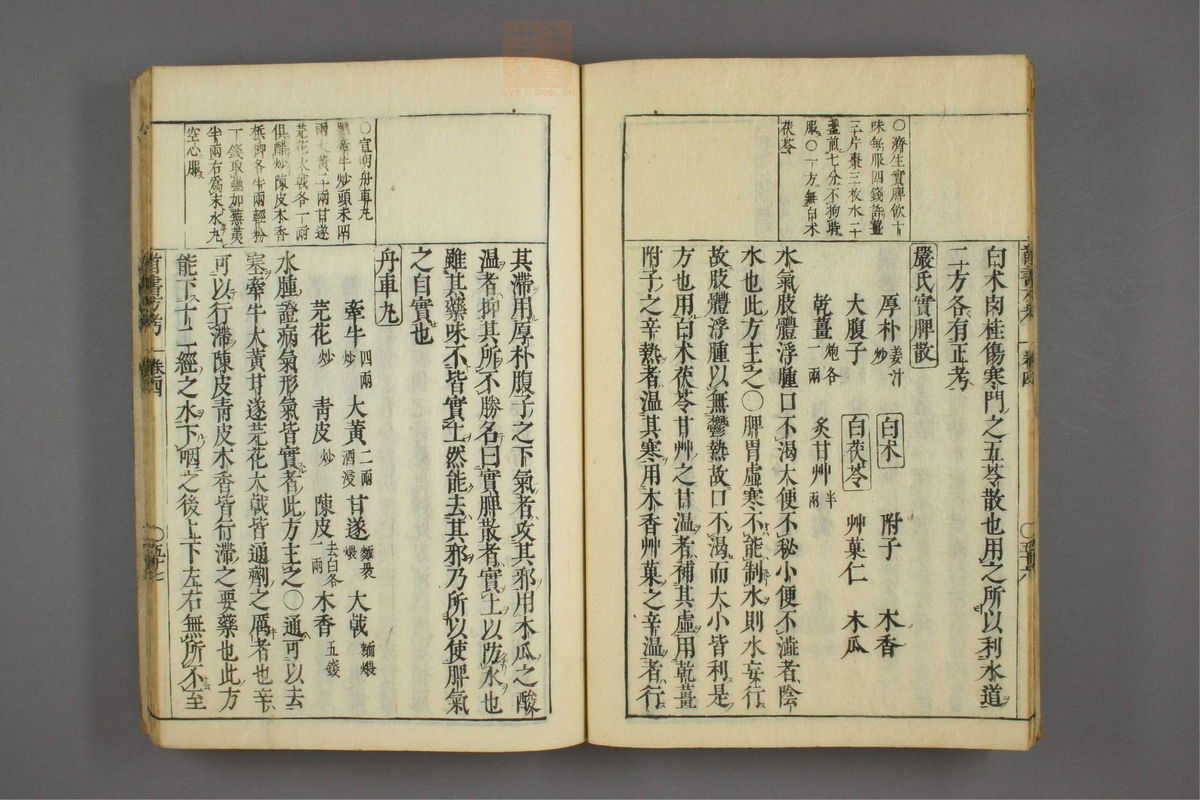 〇濟生實脾飲右
味每服四錢許薑
三片棗三枚水二
盞煎七分不拘時
服〇一方無白术
茯苓
白术肉桂傷寒門之五苓散也用之所以利水道
二方各有正考
嚴氏實脾散
厚朴姜汁炒 白术 附子 木香
大腹子 白茯苓 艸菓仁 木瓜
乾薑炮各一兩 炙甘艸半兩
水氣肢體浮腫口不渴大便不秘小便不澁者陰
水也此方主之〇脾胃虛寒不能制水則水妄行
故肢體浮腫以無鬱熱故口不渴而大小皆利是
方也用白术茯苓甘艸之甘溫者補其虛用乾薑
附子之辛熱者溫其寒用木香艸菓之辛溫者行
〇宣明舟車丸
黑牽牛炒頭末四
兩大黃二兩甘遂
芫花大戟各一兩
俱醋炒陳皮木香
檳榔各半兩輕粉
一錢取蟲加蕪荑
半兩右爲末水丸
空心服
其滯用厚朴腹子之下氣者攻其邪用木瓜之酸
溫者抑其所不勝名曰實脾散者實土以防水也
雖其藥味不皆實土然能去其邪乃所以使脾氣
之自實也
舟車丸
牽牛四兩炒 大黃二兩酒浸 甘遂麵裹煨 大戟麵煨
芫花炒 青皮炒 陳皮去白各一兩 木香五錢
水腫證病氣形氣皆實者此方主之〇通可以去
塞牽牛大黃甘遂芫花大戟皆通劑之厲者也辛
可以行滯陳皮青皮木香皆行滯之要藥也此方
能下十二經之水下咽之後上下左右無所不至